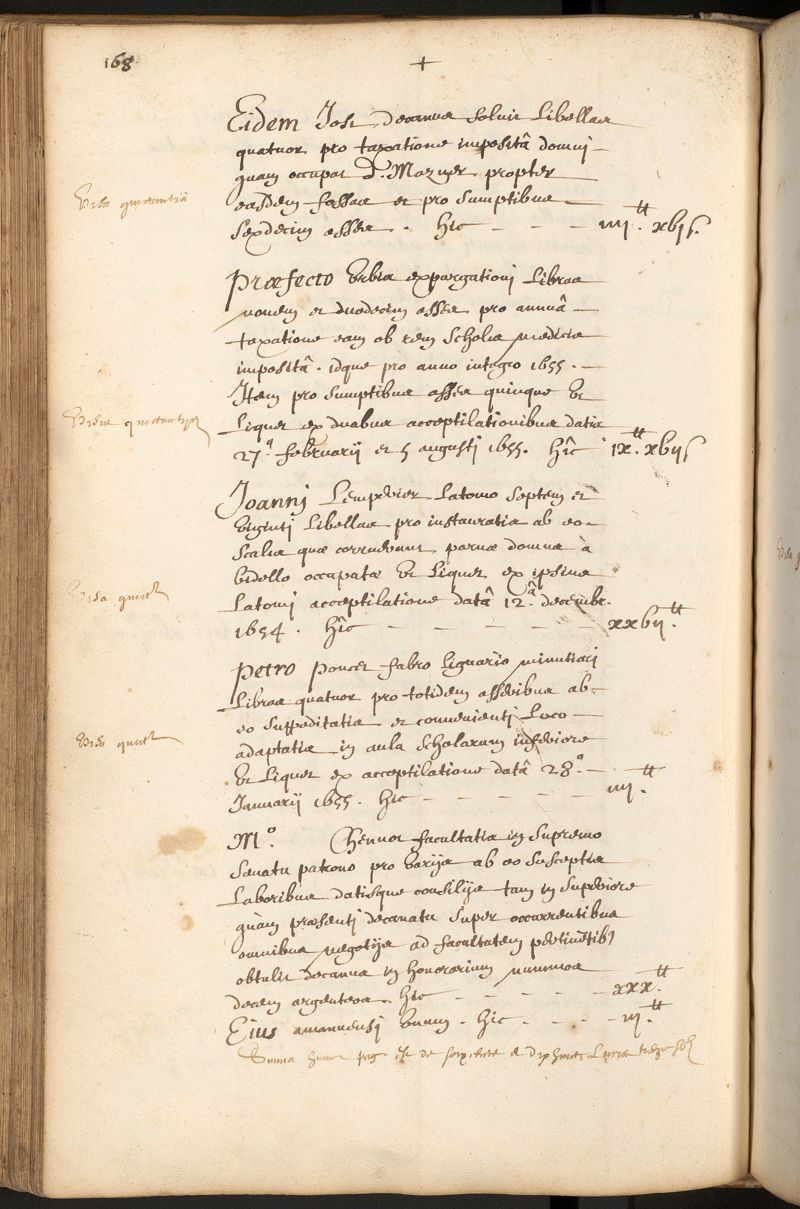 168
+
Eidem Iose decanus solvit Libellas
quatuor pro taxatione impositâ domui
quam occupat D. Mazuer propter
Visa quitantia
easdem fossas et pro sumptibus
sexdecim asses . hic - - - iiij.tt xvjs.
Præfecto Urbis expurgationi Libras
novem et duodecim asses pro annuâ
taxatione eam ob rem Scholis medicis
impositâ . idque pro anno integro 1655.
Item pro sumptibus asses quinque Ut
Visis quitantijs
Liquet ex duabus acceptilationibus datis
27.a februarij et 5 augusti 1655. hîc ix.tt xvijs
Joanni Latomo septem et
Viginti Libellas pro instauratis ab eo
Scalis quæ corruebant parvæ domus à
bidello occupatæ Ut Liquet ex ipsius
Visa quitt
Latomi acceptilatione datâ 12.a decembr.
1654 . hîc - - - - - xxvij.tt
Petro Poncet fabro Lignario minutiari
Libras quatuor pro totidem asseribus ab
eo suppeditatis et convenienti Loco
Visa quitt
adaptatis in aula Scholarum inferiore
Ut Liquet ex acceptilatione datâ 28.a
Ianuarij 1655. hic - - - - - iiij.tt
M.o Chenvot facultatis in Supremo
Senatu patrono pro varijs ab eo susceptis
Laboribus datisque consilijs tam in superiore
quàm præsenti decanatu super occurrentibus
omnibus negotijs ad facultatem pertinētibus
obtulit decanus in honorarium nummos
decem argenteos. hic - - - - - xxx.tt
Eius amanuensi Unum . hic - - - - iij.tt
pag de soixante &